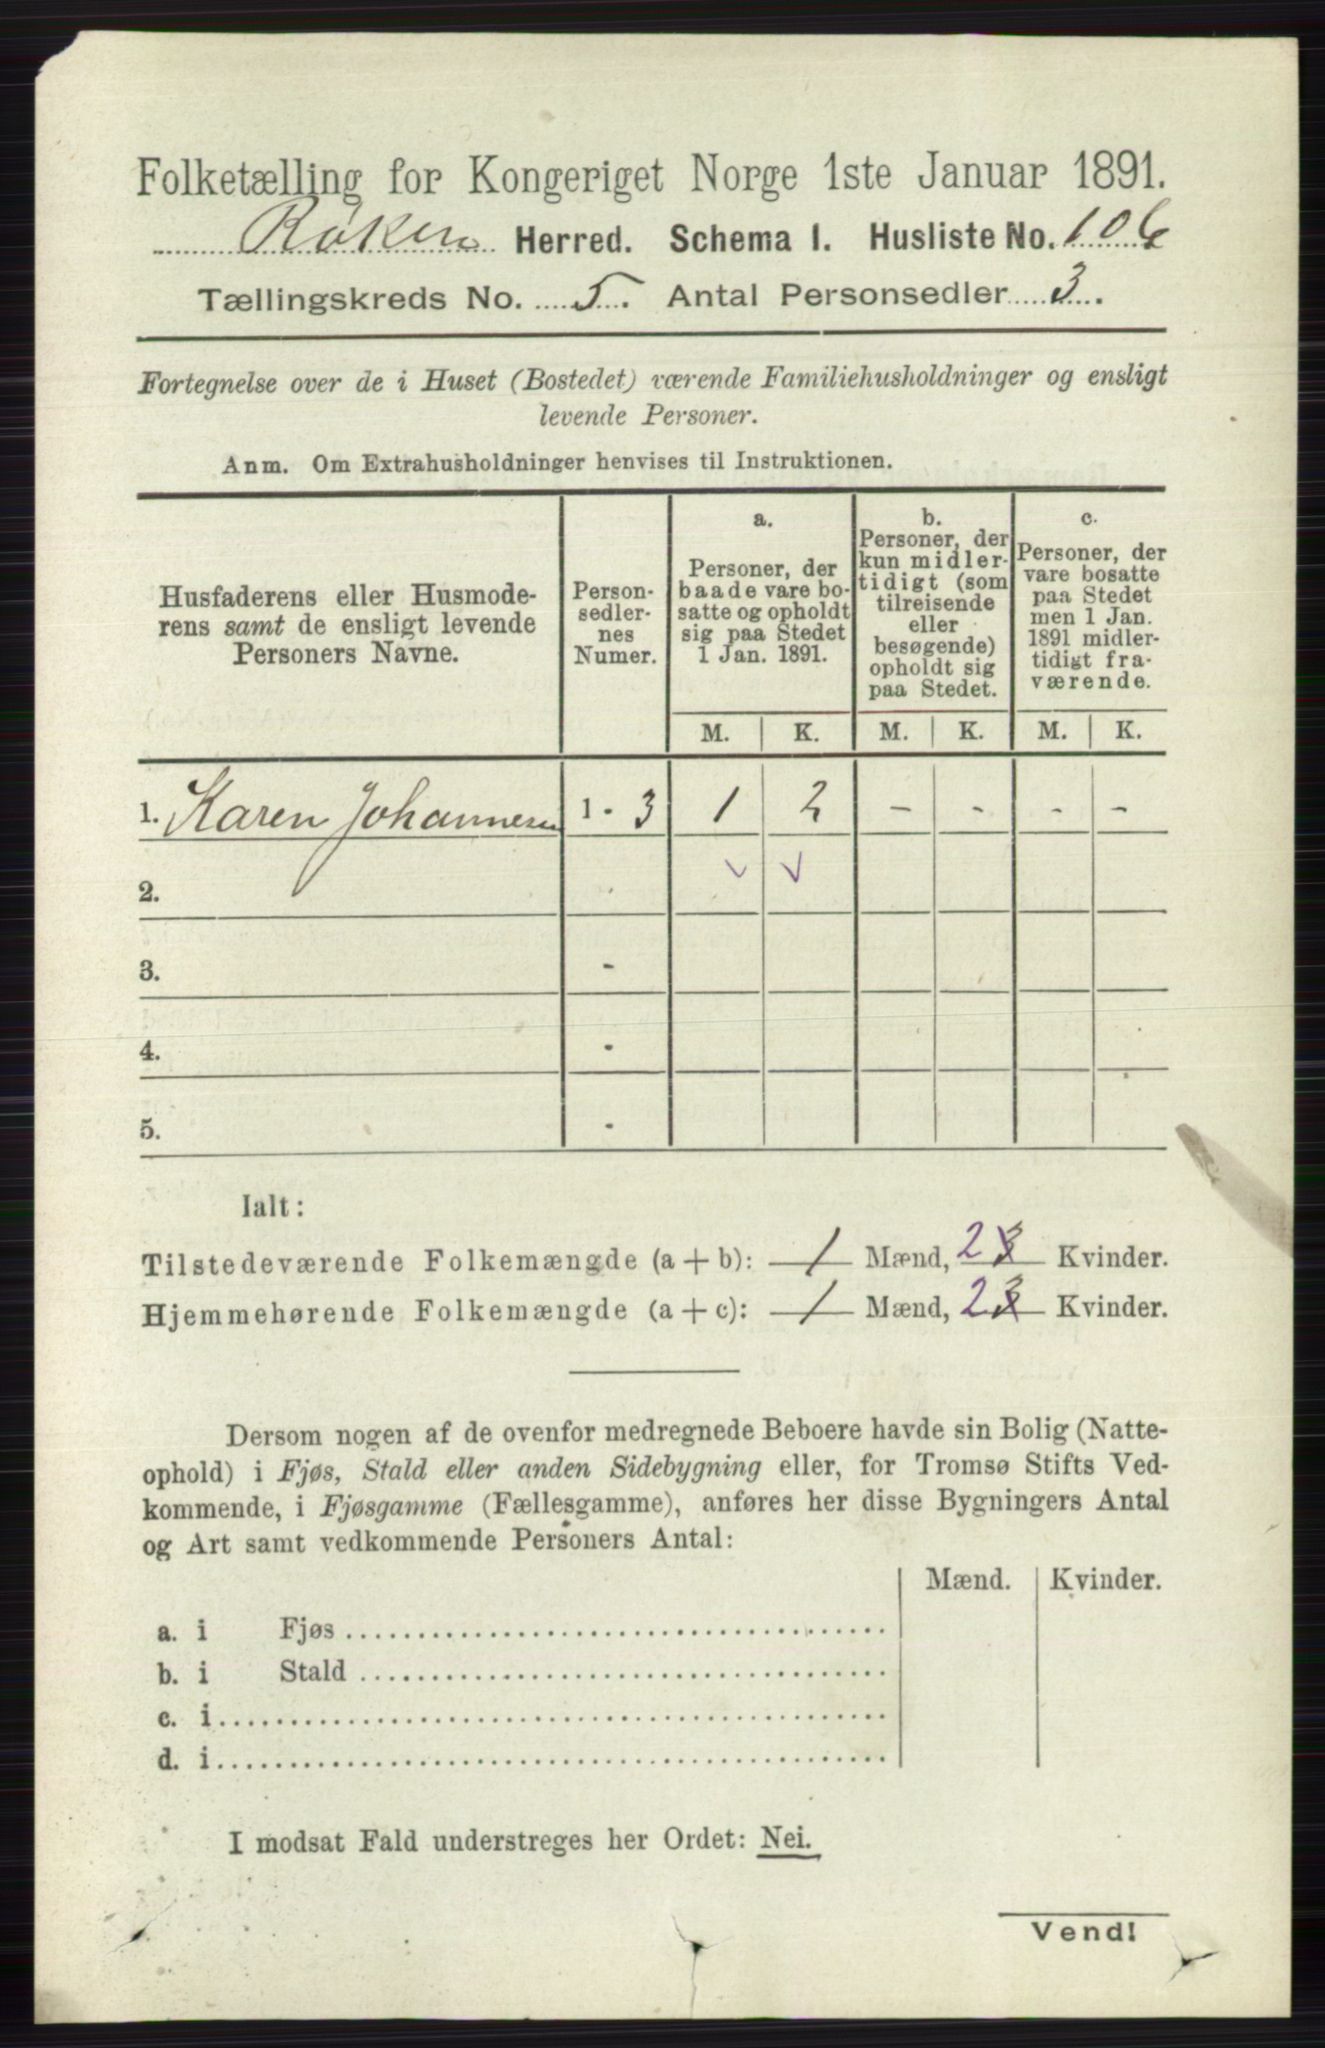 Folketælling for Kongeriget Norge 1ste Januar 1891.
Røken Herred. Schema I. Husliste No. 106
Tællingskreds No. 5. Antal Personsedler 3.
Fortegnelse over de i Huset (Bostedet) værende Familiehusholdninger og ensligt
levende Personer.
Anm. Om Extrahusholdninger henvises til Instruktionen.
Husfaderens eller Husmode-
rens samt de ensligt levende
Personers Navne.
Person-
sedler-
nes
Numer.
a.
Personer, der
baade vare bo-
satte og opholdt
sig paa Stedet
1 Jan. 1891.
b.
Personer, der
kun midler-
tidigt (som
tilreisende
eller
besøgende)
opholdt sig
paa Stedet.
c.
Personer, der
vare bosatte
paa Stedet
men 1 Jan.
1891 midler-
tidigt fra-
værende.
M. K. M. K. M. K.
1. Karen Johannesen 1 - 3 1 2 - - - -
2.
3. -
4. -
5. -
Ialt:
Tilstedeværende Folkemængde (a + b): 1 Mænd, 2 3 Kvinder.
Hjemmehørende Folkemængde (a + c): 1 Mænd, 2 3 Kvinder.
Dersom nogen af de ovenfor medregnede Beboere havde sin Bolig (Natte-
ophold) i Fjøs, Stald eller anden Sidebygning eller, for Tromsø Stifts Ved-
kommende, i Fjøsgamme (Fællesgamme), anføres her disse Bygningers Antal
og Art samt vedkommende Personers Antal:
Mænd. Kvinder.
a. i Fjøs
b. i Stald
c. i
d. i
I modsat Fald understreges her Ordet: Nei.
Vend!